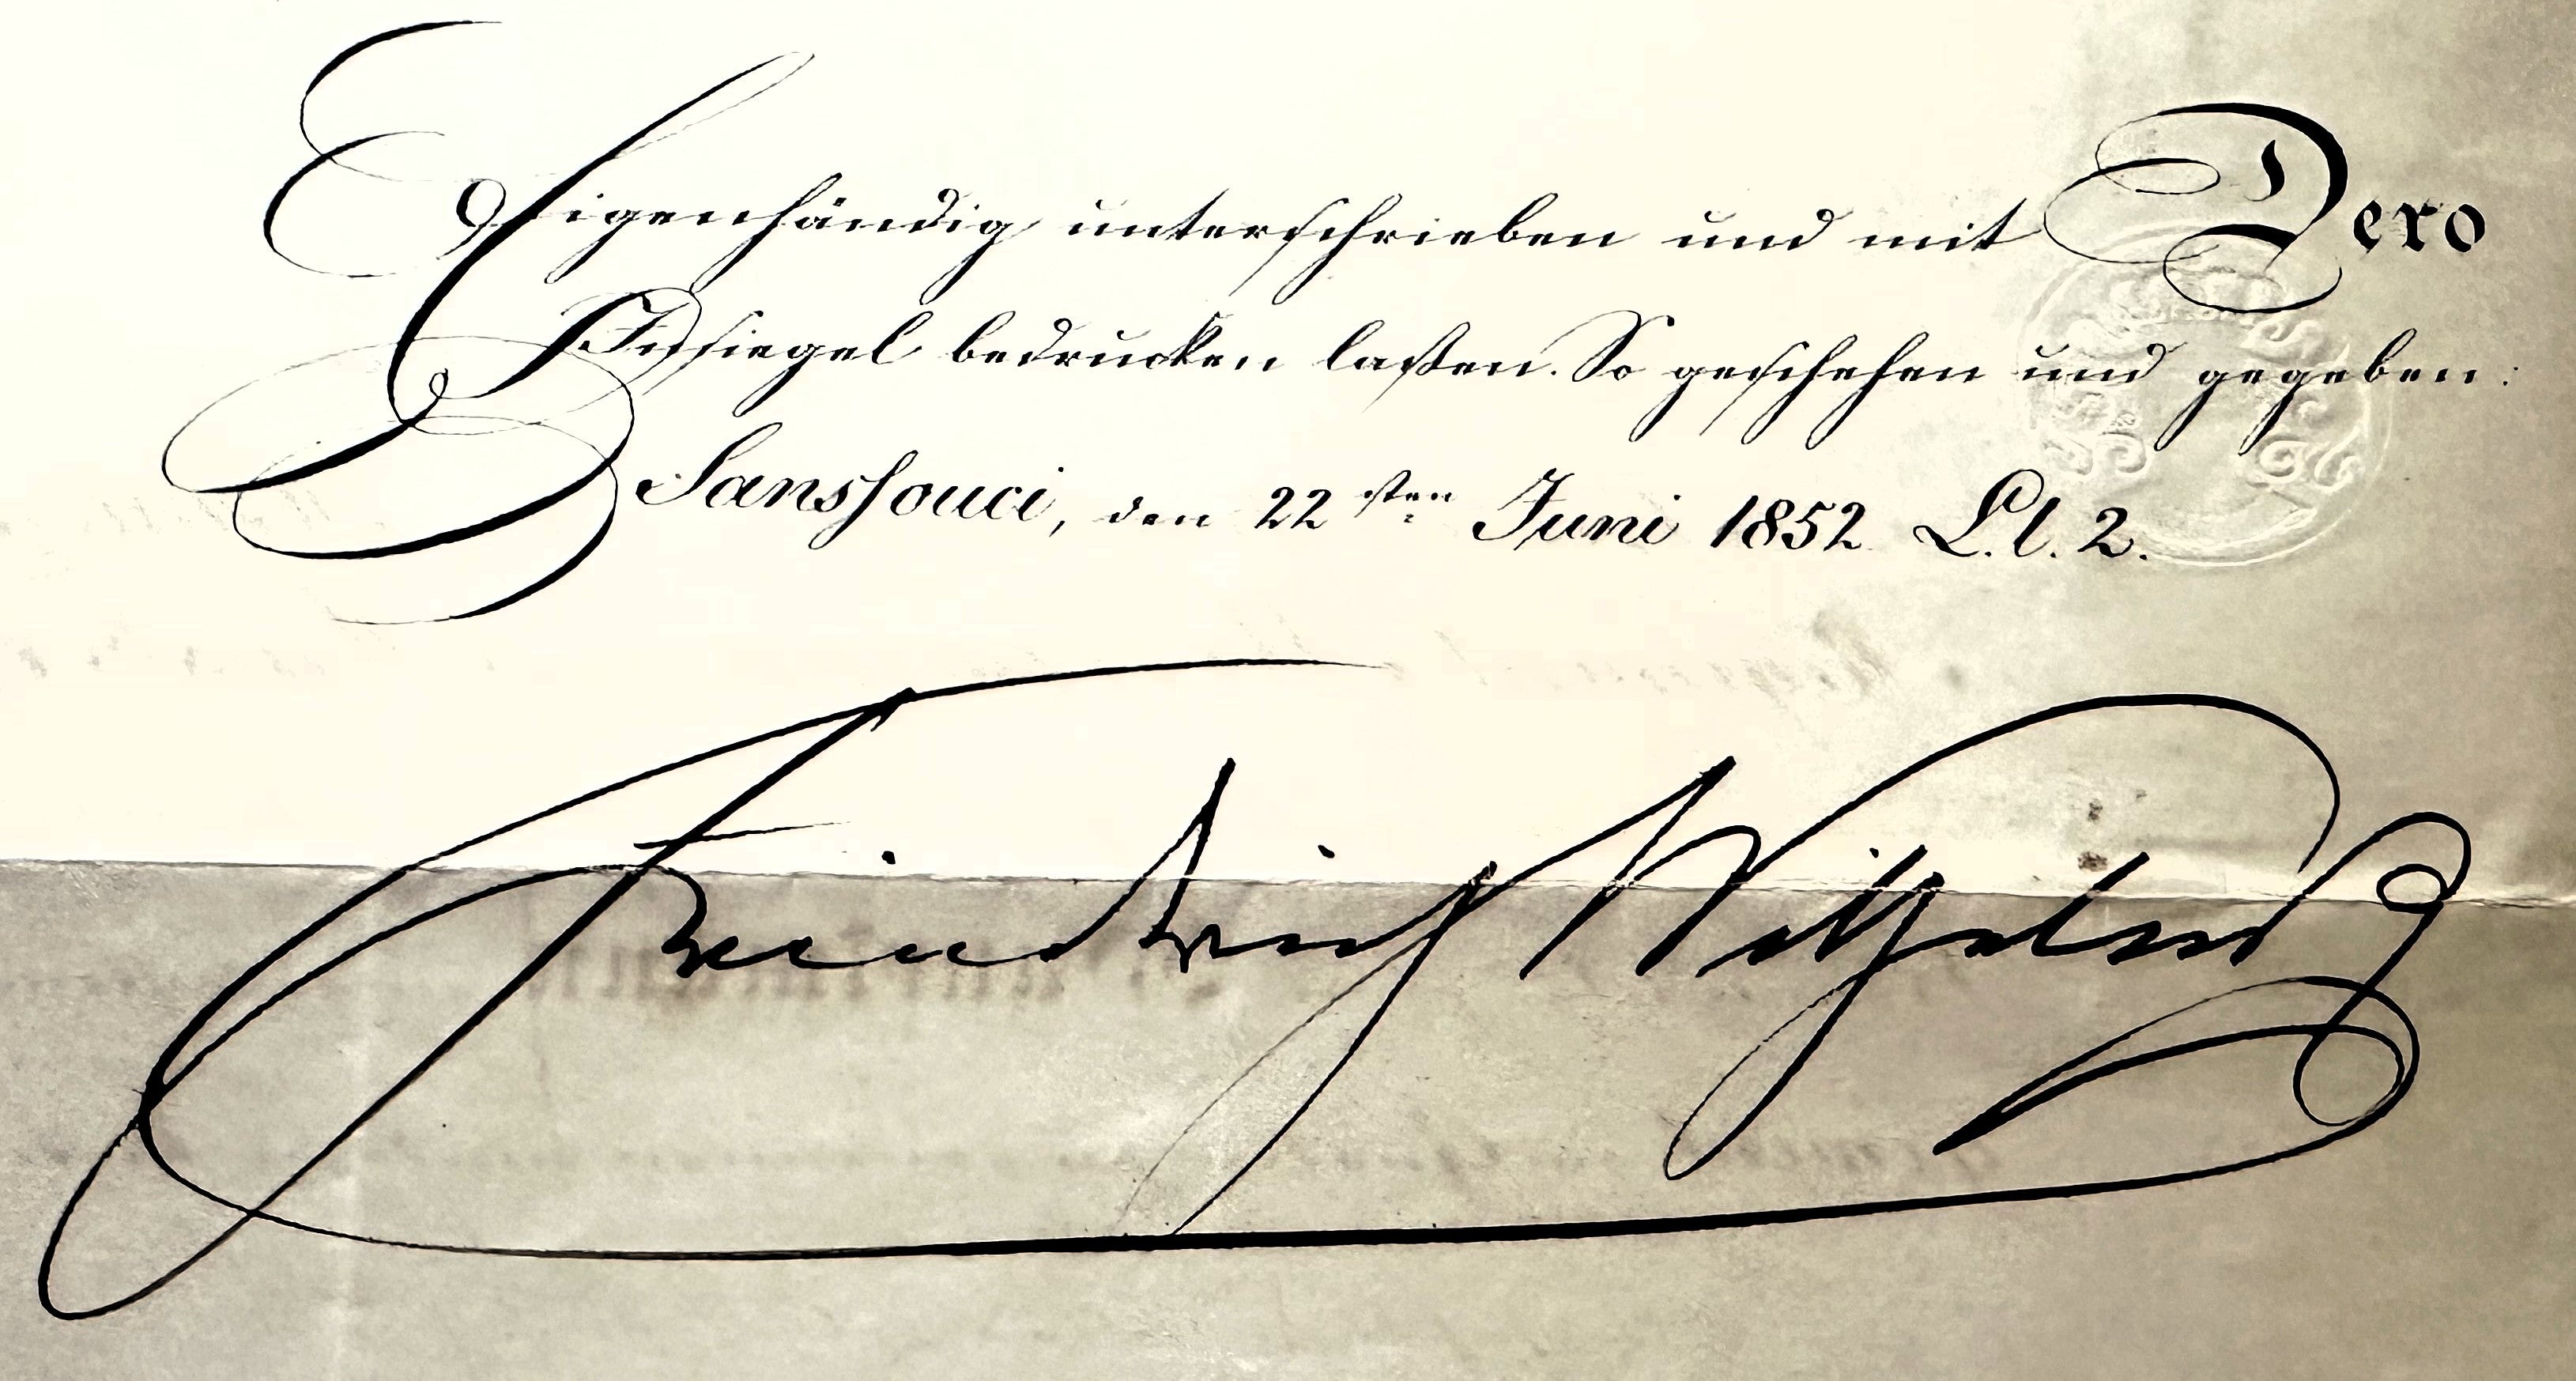 Eigenhändig unterschrieben und mit Dero
Insiegel bedrucken laßen. So geschehen und gegeben:
Sanssouci, den 22sten Juni 1852
Friedrich Wilhelm